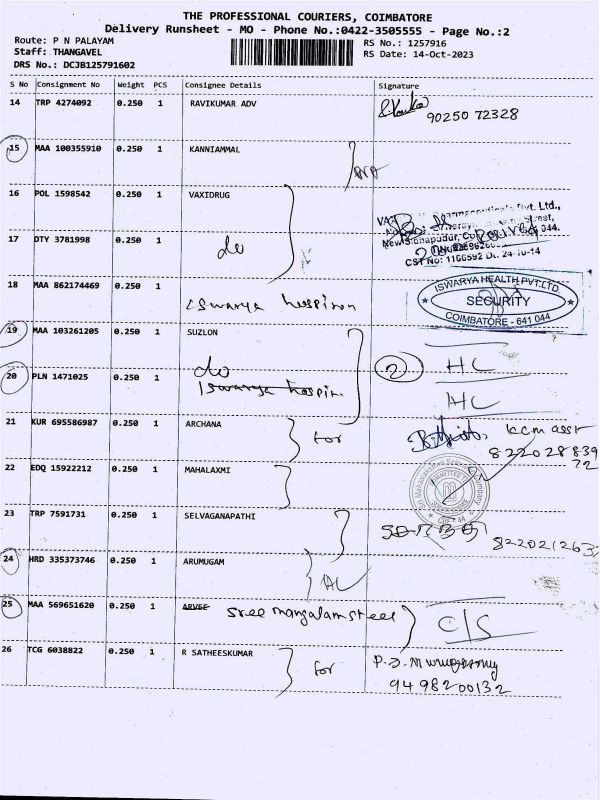 THE PROFESSIONAL COURIERS, COIMBATORE
Delivery Runsheet - MO - Phone No.:0422-3505555 - Page No.:2
Route: P N PALAYAM
RS No.: 1257916
Staff: THANGAVEL
RS Date: 14-Oct-2023
DRS No.: DCJB125791602
S No Consignment No Weight PCS Consignee Details Signature
14 TRP 4274092 0.250 1 RAVIKUMAR ADV
90250 72328
15 MAA 100355910 0.250 1 KANNIAMMAL
16 POL 1598542 0.250 1 VAXIDRUG
Pvt. Ltd.,
17 DTY 3781998 0.250 1 do
044.
CST No: 1166592 Dt. 24-10-14
18 MAA 862174469 0.250 1 Iswarya
ISWARYA HEALTH PVT.LTD
SECURITY
COIMBATORE - 641 044
19 MAA 103261205 0.250 1 SUZLON
do
2 HC
20 PLN 1471025 0.250 1 Iswarya
HC
21 KUR 695586987 0.250 1 ARCHANA for
kcm asst
822028839
72
22 EDQ 15922212 0.250 1 MAHALAXMI
23 TRP 7591731 0.250 1 SELVAGANAPATHI
822021263
24 HRD 335373746 0.250 1 ARUMUGAM
25 MAA 569651620 0.250 1 ARVEE Sree mangalam steel C/S
26 TCG 6038822 0.250 1 R SATHEESKUMAR for
9498200132